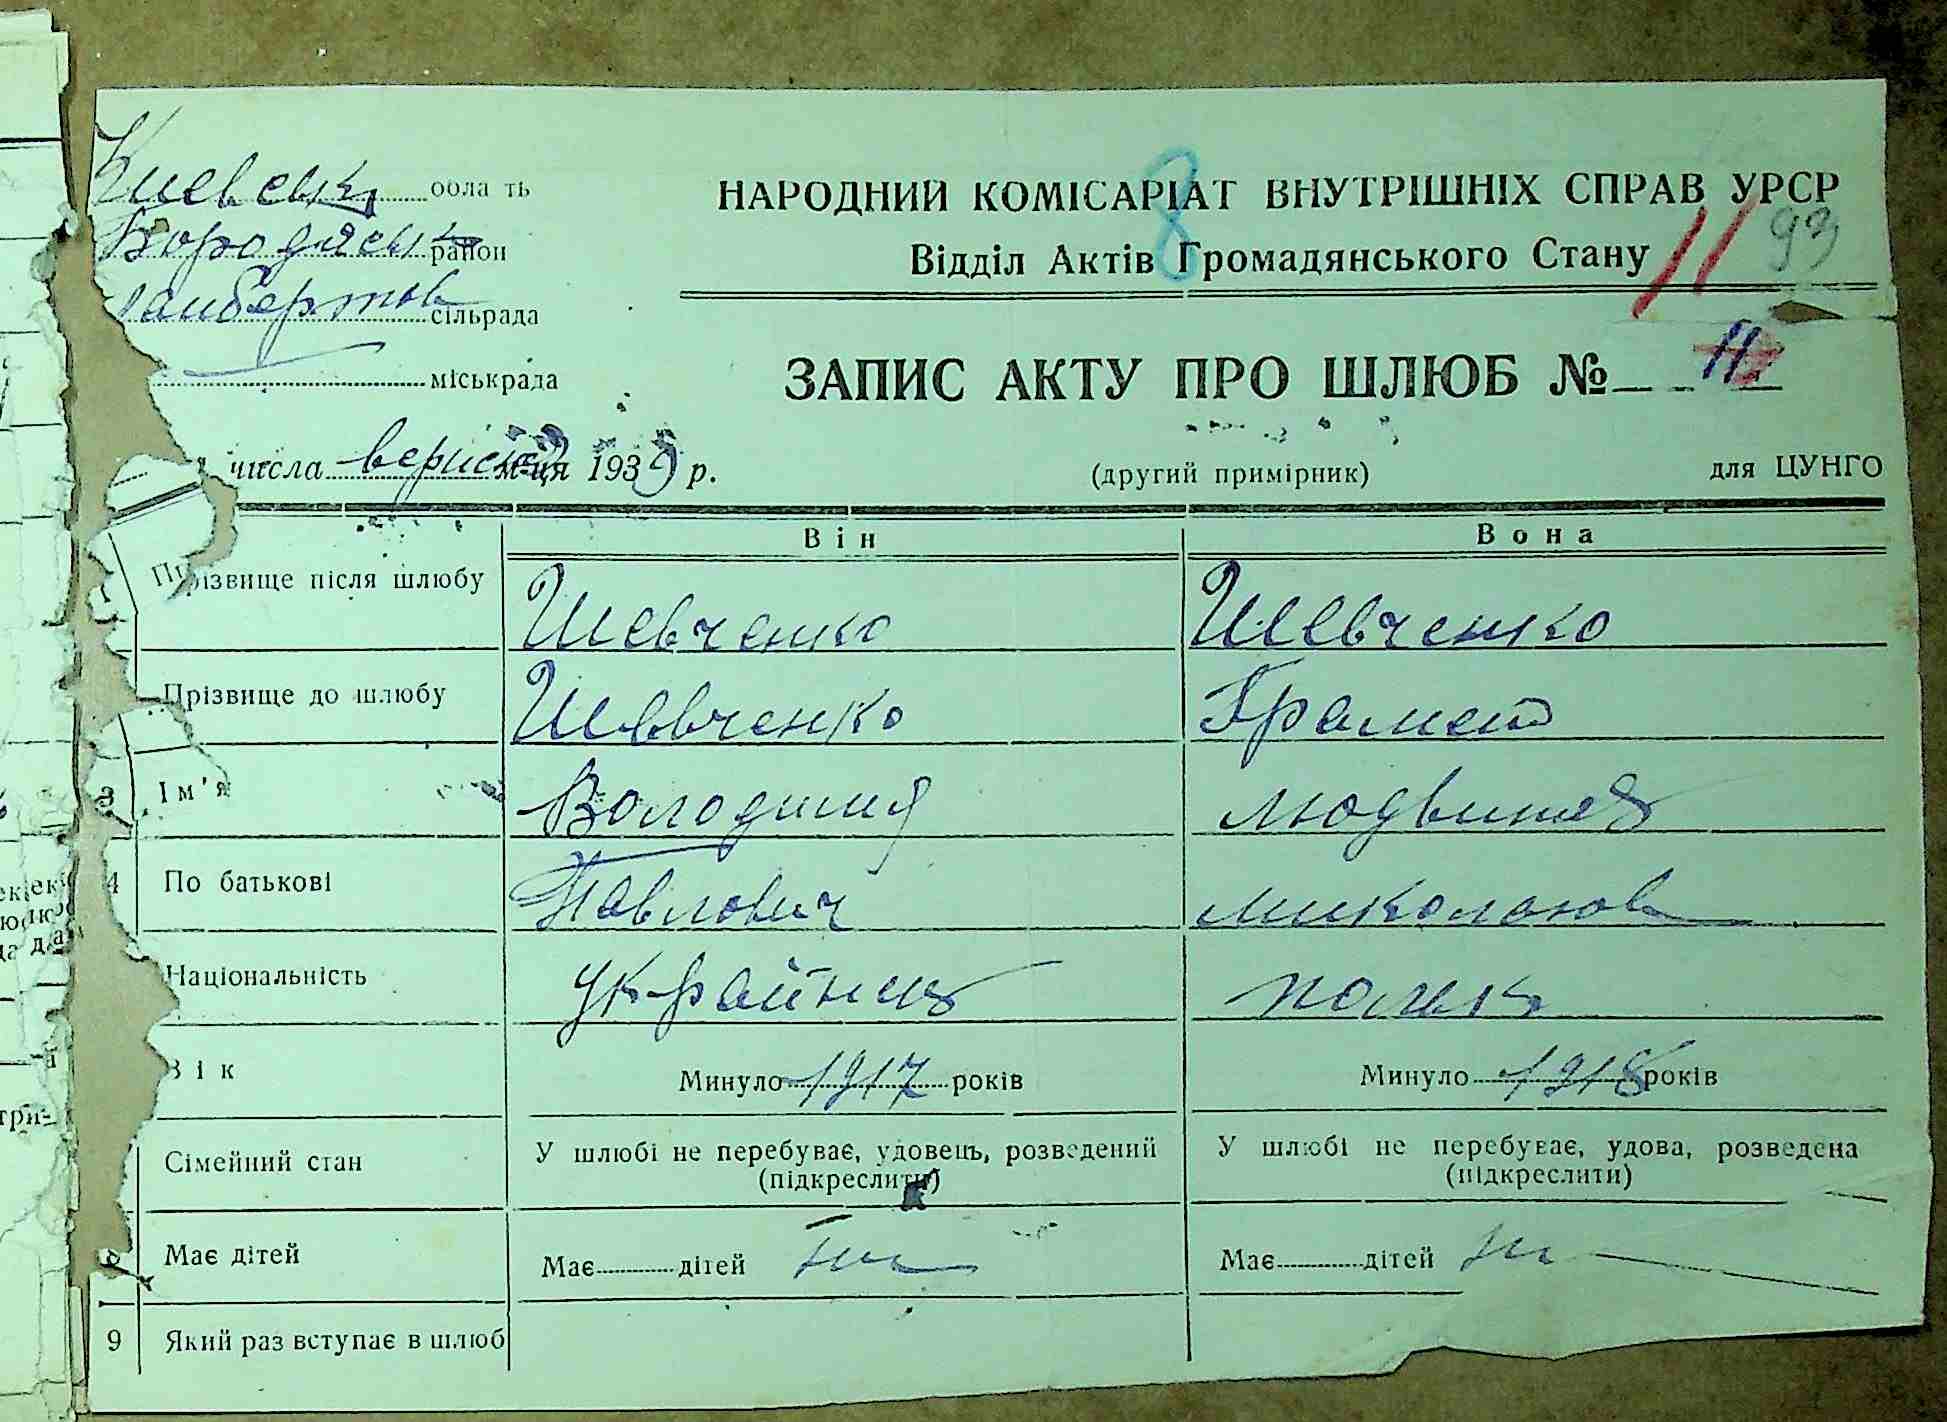 Киевськ область
Бородянськ район
сільрада
міськрада
НАРОДНИЙ КОМІСАРІАТ ВНУТРІШНІХ СПРАВ УРСР
8
Відділ Актів Громадянського Стану
11 93
ЗАПИС АКТУ ПРО ШЛЮБ № 11
числа вересня м-ця 1939 р.
(другий примірник)
для ЦУНГО
Він Вона
Прізвище після шлюбу Шевченко Шевченко
Прізвище до шлюбу Шевченко
3 Ім'я Володимир
4 По батькові Павлович Миколаюв
Національність українец полька
Вік Минуло 1917 років Минуло 1918 років
Сімейний стан У шлюбі не перебуває, удовець, розведений У шлюбі не перебуває, удова, розведена
(підкреслити) (підкреслити)
8 Має дітей Має дітей Має дітей
9 Який раз вступає в шлюб